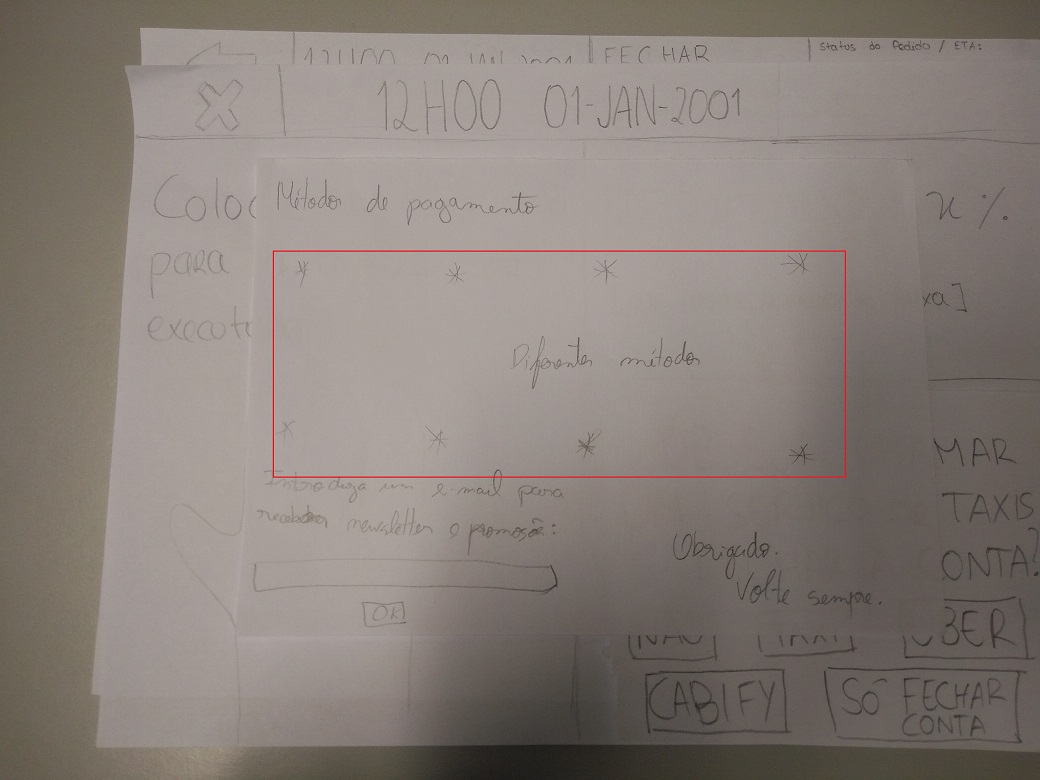 12H00 01-JAN-2001 FECHAR
Status do Pedido / ETA:
X 12H00 01-JAN-2001
Coloc
para
execut
Métodos de pagamento
x %.
xa]
Diferentes métodos
Introduza um e-mail para
receber newsletter e promoções:
OK
Obrigado.
Volte sempre.
MAR
TAXIS
ONTA?
NÃO TAXI UBER
CABIFY
SÓ FECHAR
CONTA